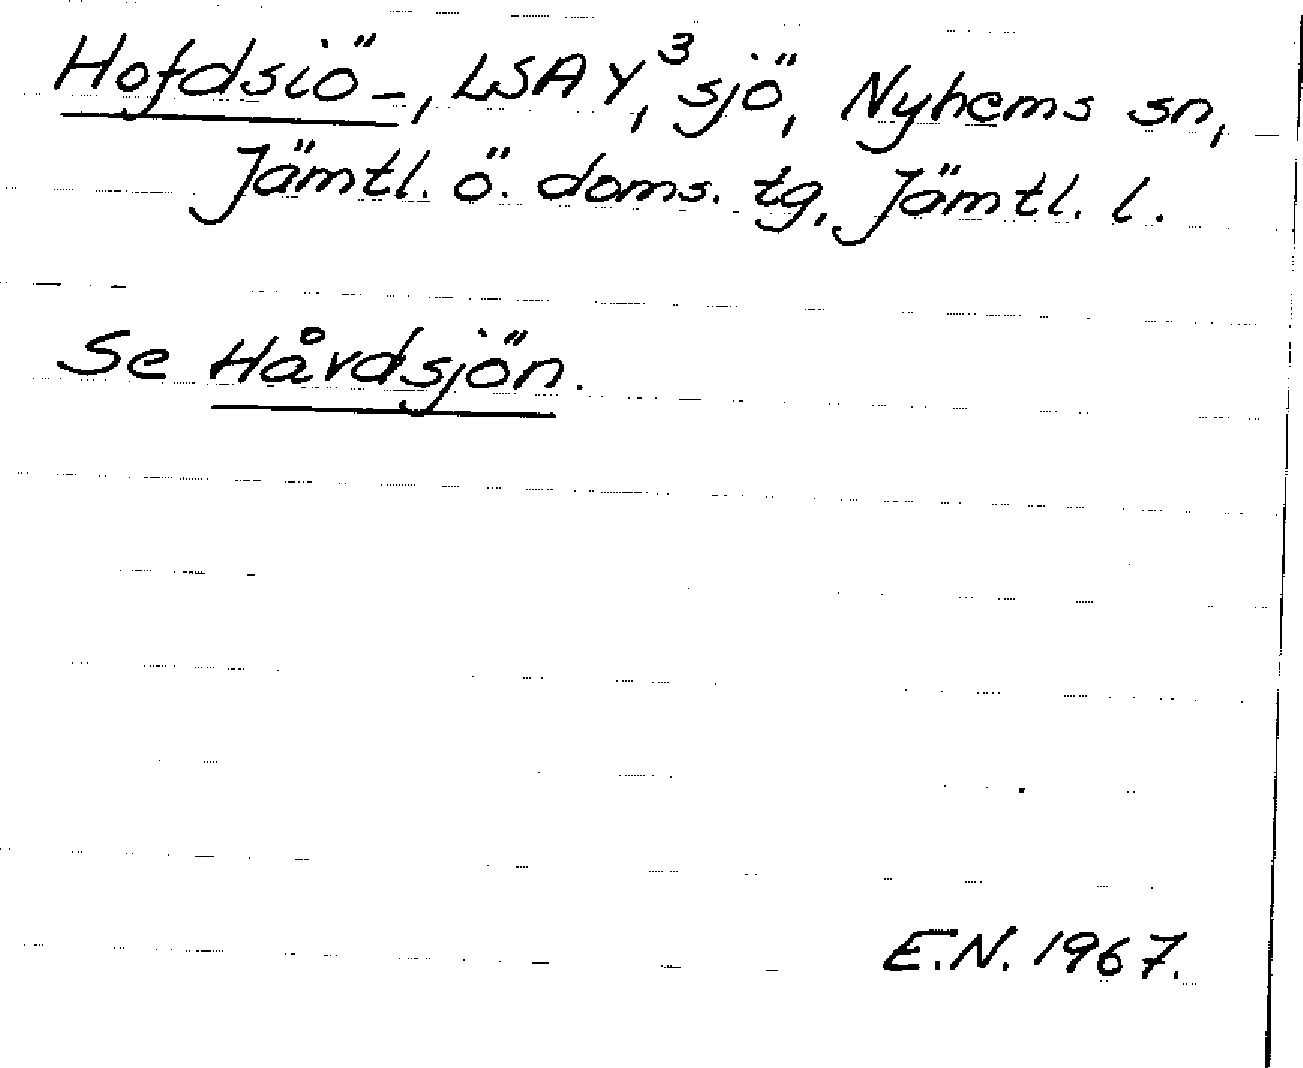 Hofdsiö-, LSA Y,³ sjö, Nyhems sn,
Jämtl. ö. doms. tg, Jämtl. l.
Se Håvdsjön.
E.N. 1967.